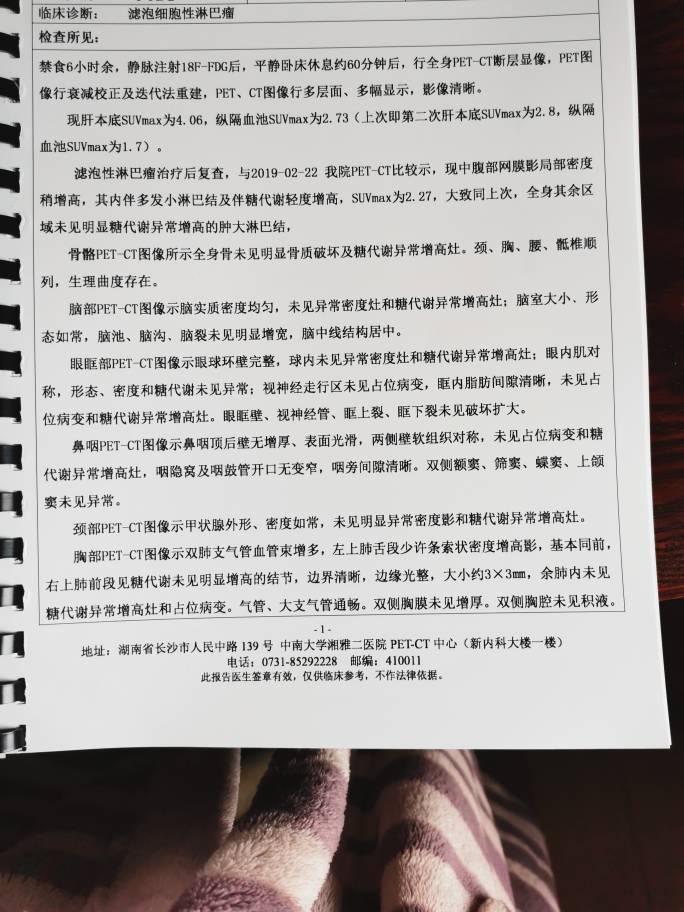 临床诊断： 滤泡细胞性淋巴瘤
检查所见：
禁食6小时余，静脉注射18F-FDG后，平静卧床休息约60分钟后，行全身PET-CT断层显像，PET图
像行衰减校正及迭代法重建，PET、CT图像行多层面、多幅显示，影像清晰。
现肝本底SUVmax为4.06，纵隔血池SUVmax为2.73（上次即第二次肝本底SUVmax为2.8，纵隔
血池SUVmax为1.7）。
滤泡性淋巴瘤治疗后复查，与2019-02-22 我院PET-CT比较示，现中腹部网膜影局部密度
稍增高，其内伴多发小淋巴结及伴糖代谢轻度增高，SUVmax为2.27，大致同上次，全身其余区
域未见明显糖代谢异常增高的肿大淋巴结，
骨骼PET-CT图像所示全身骨未见明显骨质破坏及糖代谢异常增高灶。颈、胸、腰、骶椎顺
列，生理曲度存在。
脑部PET-CT图像示脑实质密度均匀，未见异常密度灶和糖代谢异常增高灶；脑室大小、形
态如常，脑池、脑沟、脑裂未见明显增宽，脑中线结构居中。
眼眶部PET-CT图像示眼球环壁完整，球内未见异常密度灶和糖代谢异常增高灶；眼内肌对
称，形态、密度和糖代谢未见异常；视神经走行区未见占位病变，眶内脂肪间隙清晰，未见占
位病变和糖代谢异常增高灶。眼眶壁、视神经管、眶上裂、眶下裂未见破坏扩大。
鼻咽PET-CT图像示鼻咽顶后壁无增厚、表面光滑，两侧壁软组织对称，未见占位病变和糖
代谢异常增高灶，咽隐窝及咽鼓管开口无变窄，咽旁间隙清晰。双侧额窦、筛窦、蝶窦、上颌
窦未见异常。
颈部PET-CT图像示甲状腺外形、密度如常，未见明显异常密度影和糖代谢异常增高灶。
胸部PET-CT图像示双肺支气管血管束增多，左上肺舌段少许条索状密度增高影，基本同前，
右上肺前段见糖代谢未见明显增高的结节，边界清晰，边缘光整，大小约3×3mm，余肺内未见
糖代谢异常增高灶和占位病变。气管、大支气管通畅。双侧胸膜未见增厚。双侧胸腔未见积液。
- 1 -
地址：湖南省长沙市人民中路 139 号 中南大学湘雅二医院 PET-CT 中心（新内科大楼一楼）
电话：0731-85292228 邮编：410011
此报告医生签章有效，仅供临床参考，不作法律依据。